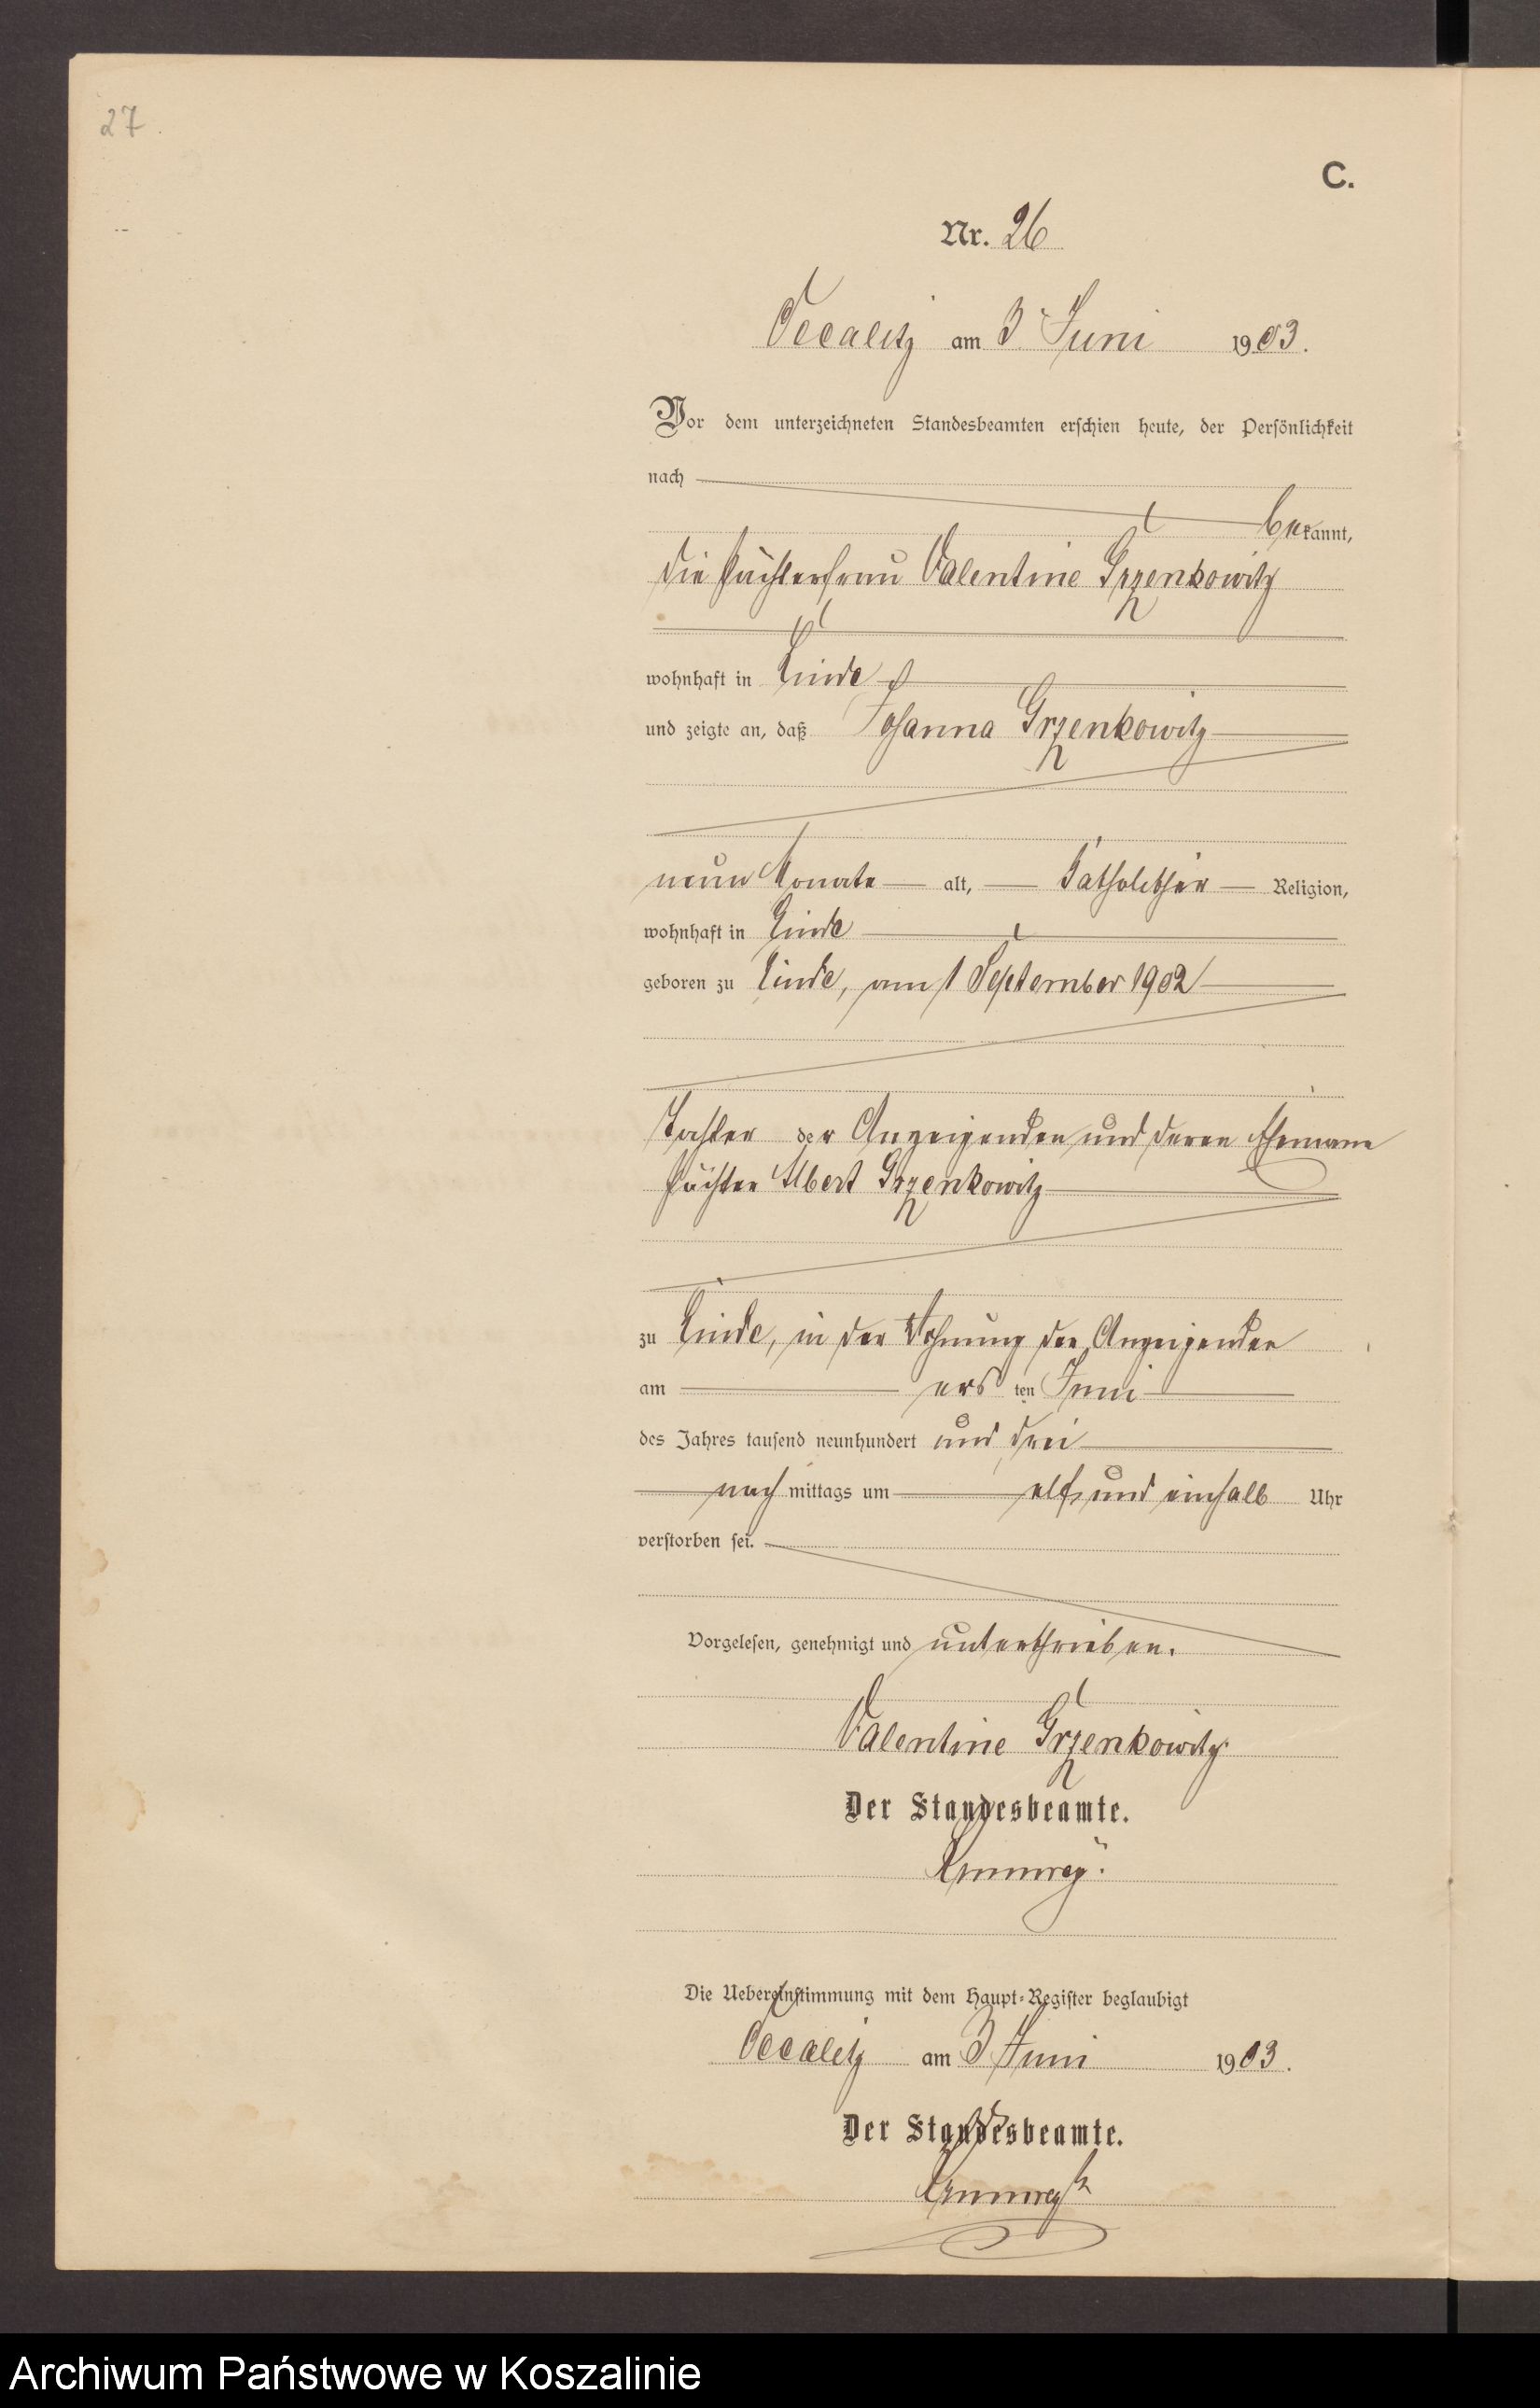 27
C.
Nr. 26
Occalitz am 3 Juni 1903.
Vor dem unterzeichneten Standesbeamten erschien heute, der Persönlichkeit
nach
bekannt,
die Pächterfrau Valentine Grzenkowitz
wohnhaft in Linde
und zeigte an, daß Johanna Grzenkowitz
neun Monate alt, katholischer Religion,
wohnhaft in Linde
geboren zu Linde, am 1 September 1902
Tochter der Anzeigenden und deren Ehemann
Pächter Albert Grzenkowitz
zu Linde, in der Wohnung der Anzeigenden
am ersten Juni
des Jahres tausend neunhundert und drei
nachmittags um elf und einhalb Uhr
verstorben sei.
Vorgelesen, genehmigt und unterschrieben.
Valentine Grzenkowitz
Der Standesbeamte.
Die Uebereinstimmung mit dem Haupt-Register beglaubigt
Occalitz am 3 Juni 1903.
Der Standesbeamte.
Archiwum Państwowe w Koszalinie